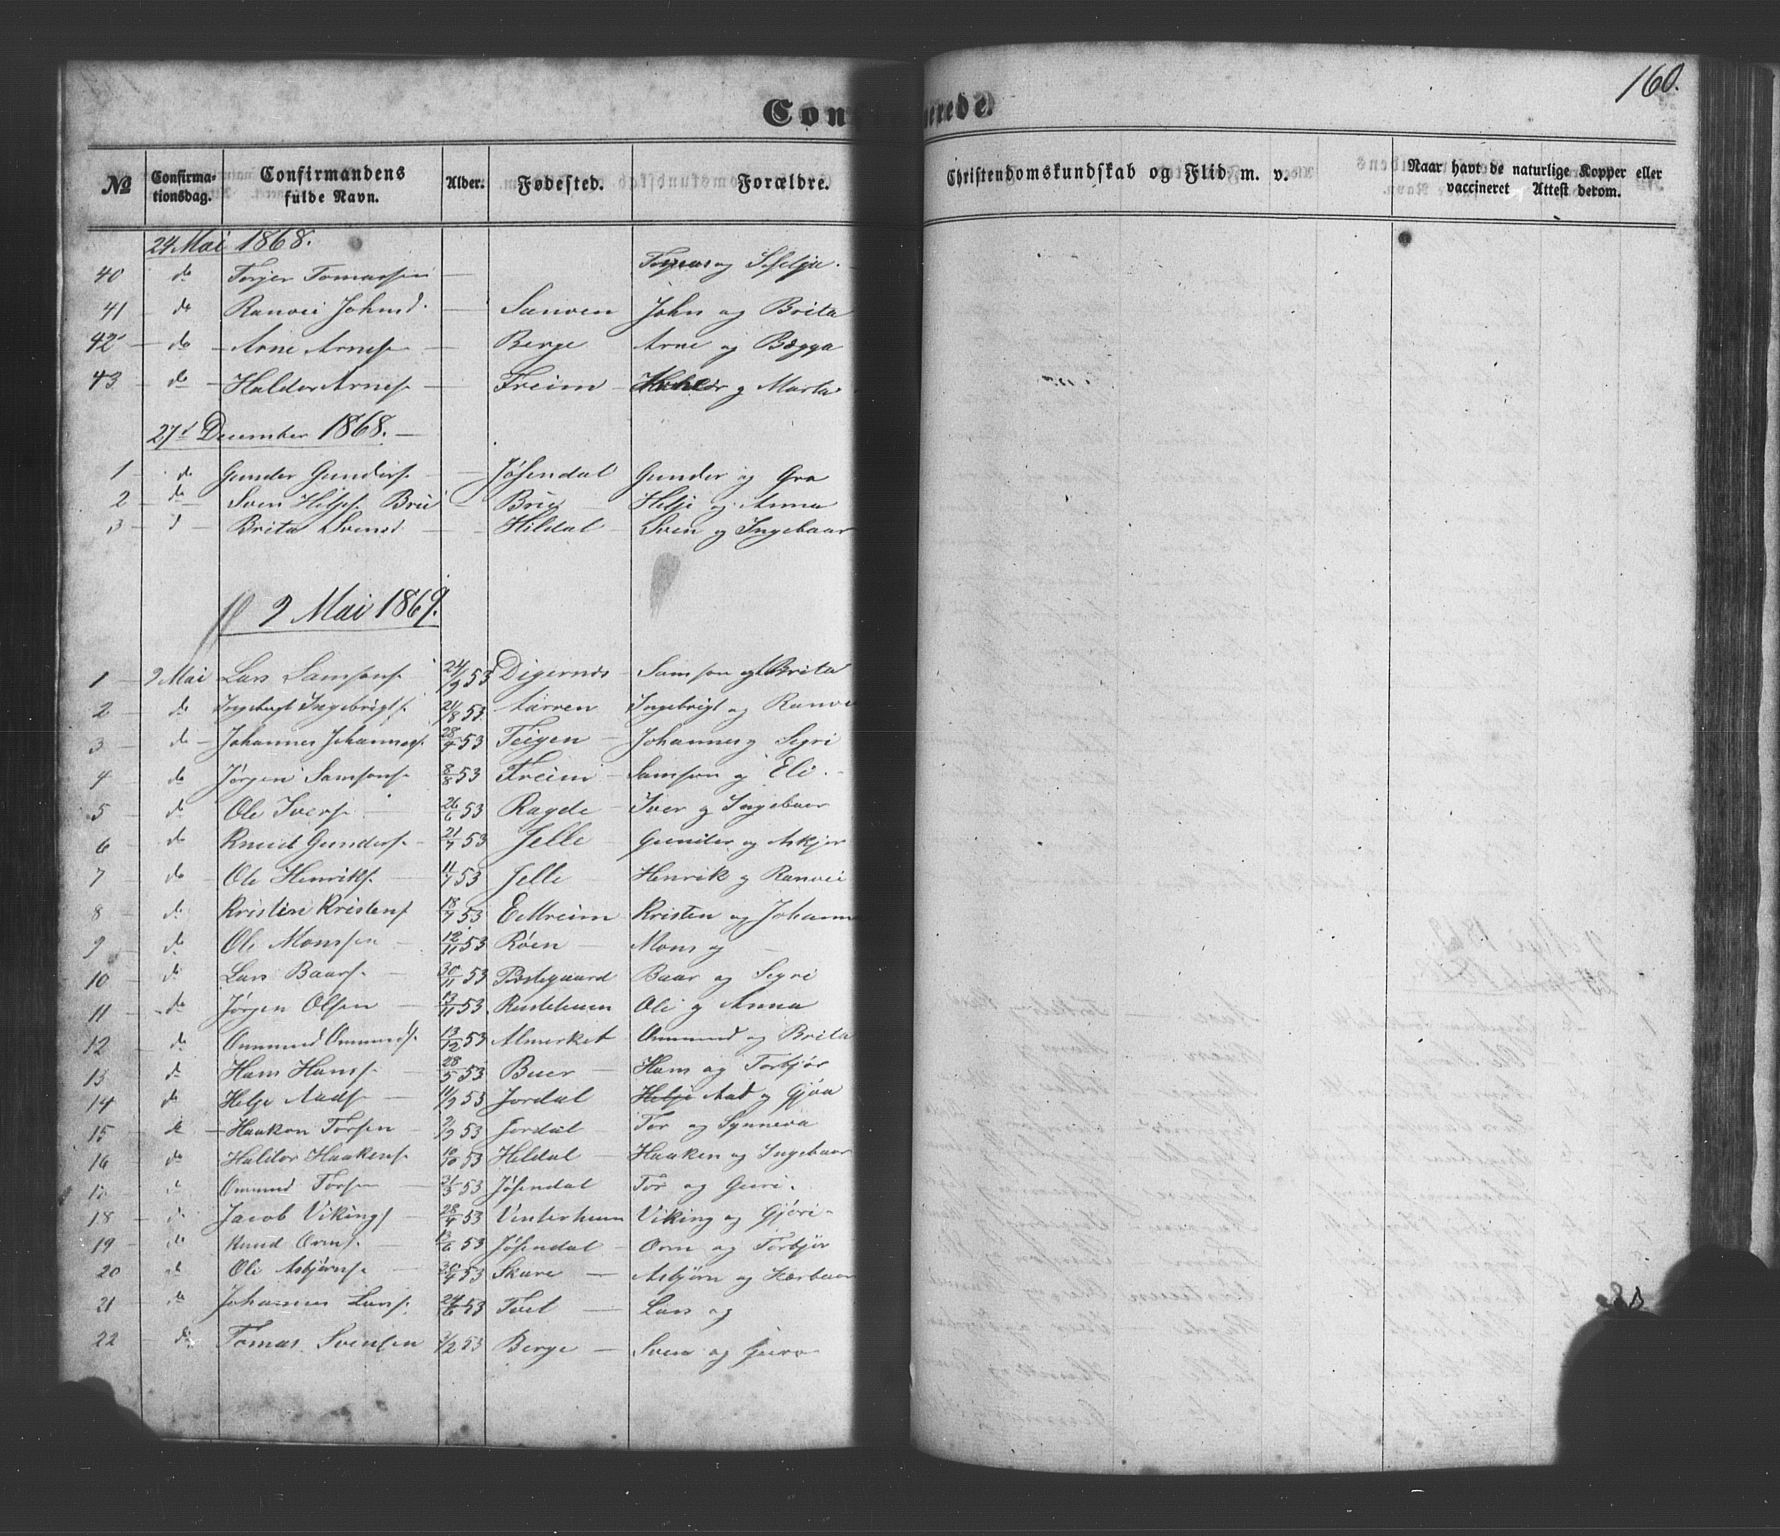 160.
Con nerede.
№ Confirmationsdag. Confirmandens fulde Navn. Alder. Fødested. Forældre. Christendomskundskab og Flid m. v. Naar havt de naturlige Kopper eller vaccineret Attest derom.
24 Mai 1868.
40 do Torjer Tomassen — Tomas og
41 — do Ranvei Johnsd. — Sanven John og Brita
42 — do — Arne Arnes. — Berge Arne og Bægga
43 — do — Haldor Arnes. — Freim — og Marta
27d December 1868. —
1 — do Gunder Gunders. — Jøsendal Gunder og Gro
2 — do — Sven Heljes. Brue Brue — Helje og Anna
3 — d — Brita Svensd — Hildal — Sven og Ingebaar
9 Mai 1869.
1 — 9 Mai Lars Samsons. 24/9 53 Digernes — Samson og Brita
2 — do Ingebrigt Ingebrigts. 24/8 53. Aarren Ingebrigt og Ranvei
3 — do — Johannes Johannes. 28/4 53 Teigen — Johannes og Segri
4 — do — Jørgen Samsons. 8/8 53 Freim — Samson og Eli. -
5 — do Ole Ivers. — 26/6 53 Ragde — Iver og Ingebaar
6 — do Knud Gunders. — 21/7 53 Jelle — Gunder og Askjer
7 — do — Ole Henriks. — 11/7 53 Jelle — Henrik og Ranvei
8 — do Kristen Kristens. 18/7 53 Eitreim Kristen og Johanna
9 — do — Ole Monssen — 12/11 53 Røen — Mons og —
10 — do Lars Baars. — 30/11 53 Prestegaard Baar og Segri
11 — do Jørgen Olsen — 13/11 53 Rusteteuen Ole og Anna
12 — do Ommund Ommunds. 13/12 53 Almerket Ommund og Brita
13 — do Hans Hans. — 28/5 53 Buer — Hans og Torbjør
14 — do Helje Aads. — 11/9 53 Jordal Helje Aad og Gjøa
15 — do — Haakon Torsen — 2/9 53 Jordal Tor og Synneva
16 — do Haldor Haakens. 10/10 53 Hildal — Haaken og Ingebaar
17 — do Ommund Torsen — 21/3 53 Jøsendal Tor og Guri.
18 — do Jacob Vikings. 28/4 53 Vintertuun Viking og Gjøri -
19 — do Knud Orms. — 13/6 53 Jøsendal — Orm og Torbjør
20 do Ole Asbjørns. — 20/4 53 Skare — Asbjørn og Herbaar
21 do Johannes Lars. 24/6 53 Tvet — Lars og
22 — do — Tomas Svensen 1/2 53 Berge — Sven og Guro